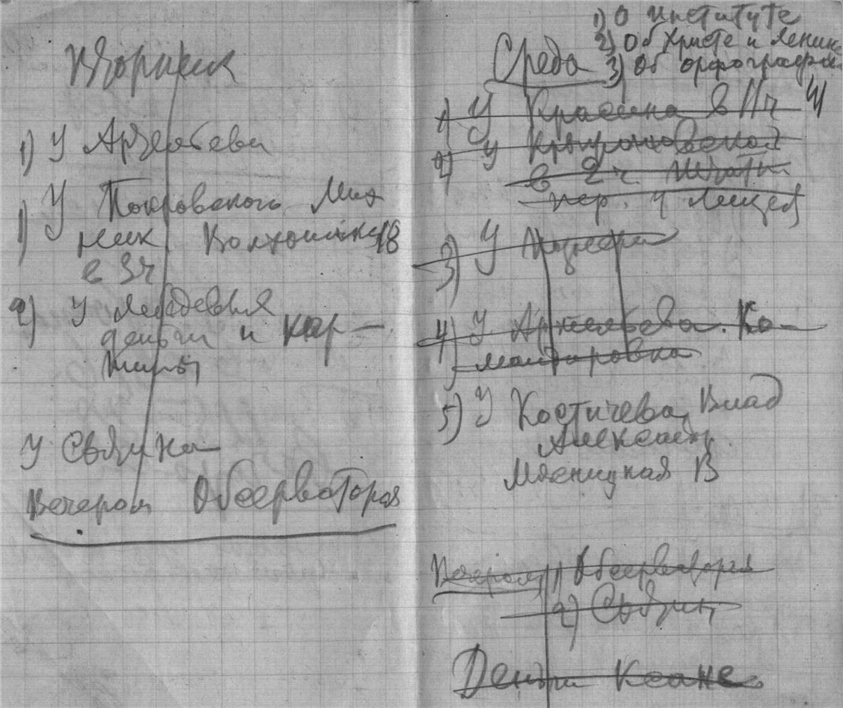 Вторник
1) У Артемьева
1) У Покровского Мих
Ник. Волхонка 18
в 3ч
2) У Лебедева
деньги и кар-
тины
У Свята
Вечером Обсерватория
1) О институте
2) Об Христе и Ленине
3) Об орфографии
Среда
1) У Красина в 11ч
2) У
в 2ч.
пер. 4
3) У
4) У Артемьева. Ко-
мандировка
5) У Костичева, Влад
Александр.
Мясницкая
Вечером 1) Обсерватория
2)
Деньги Ксане